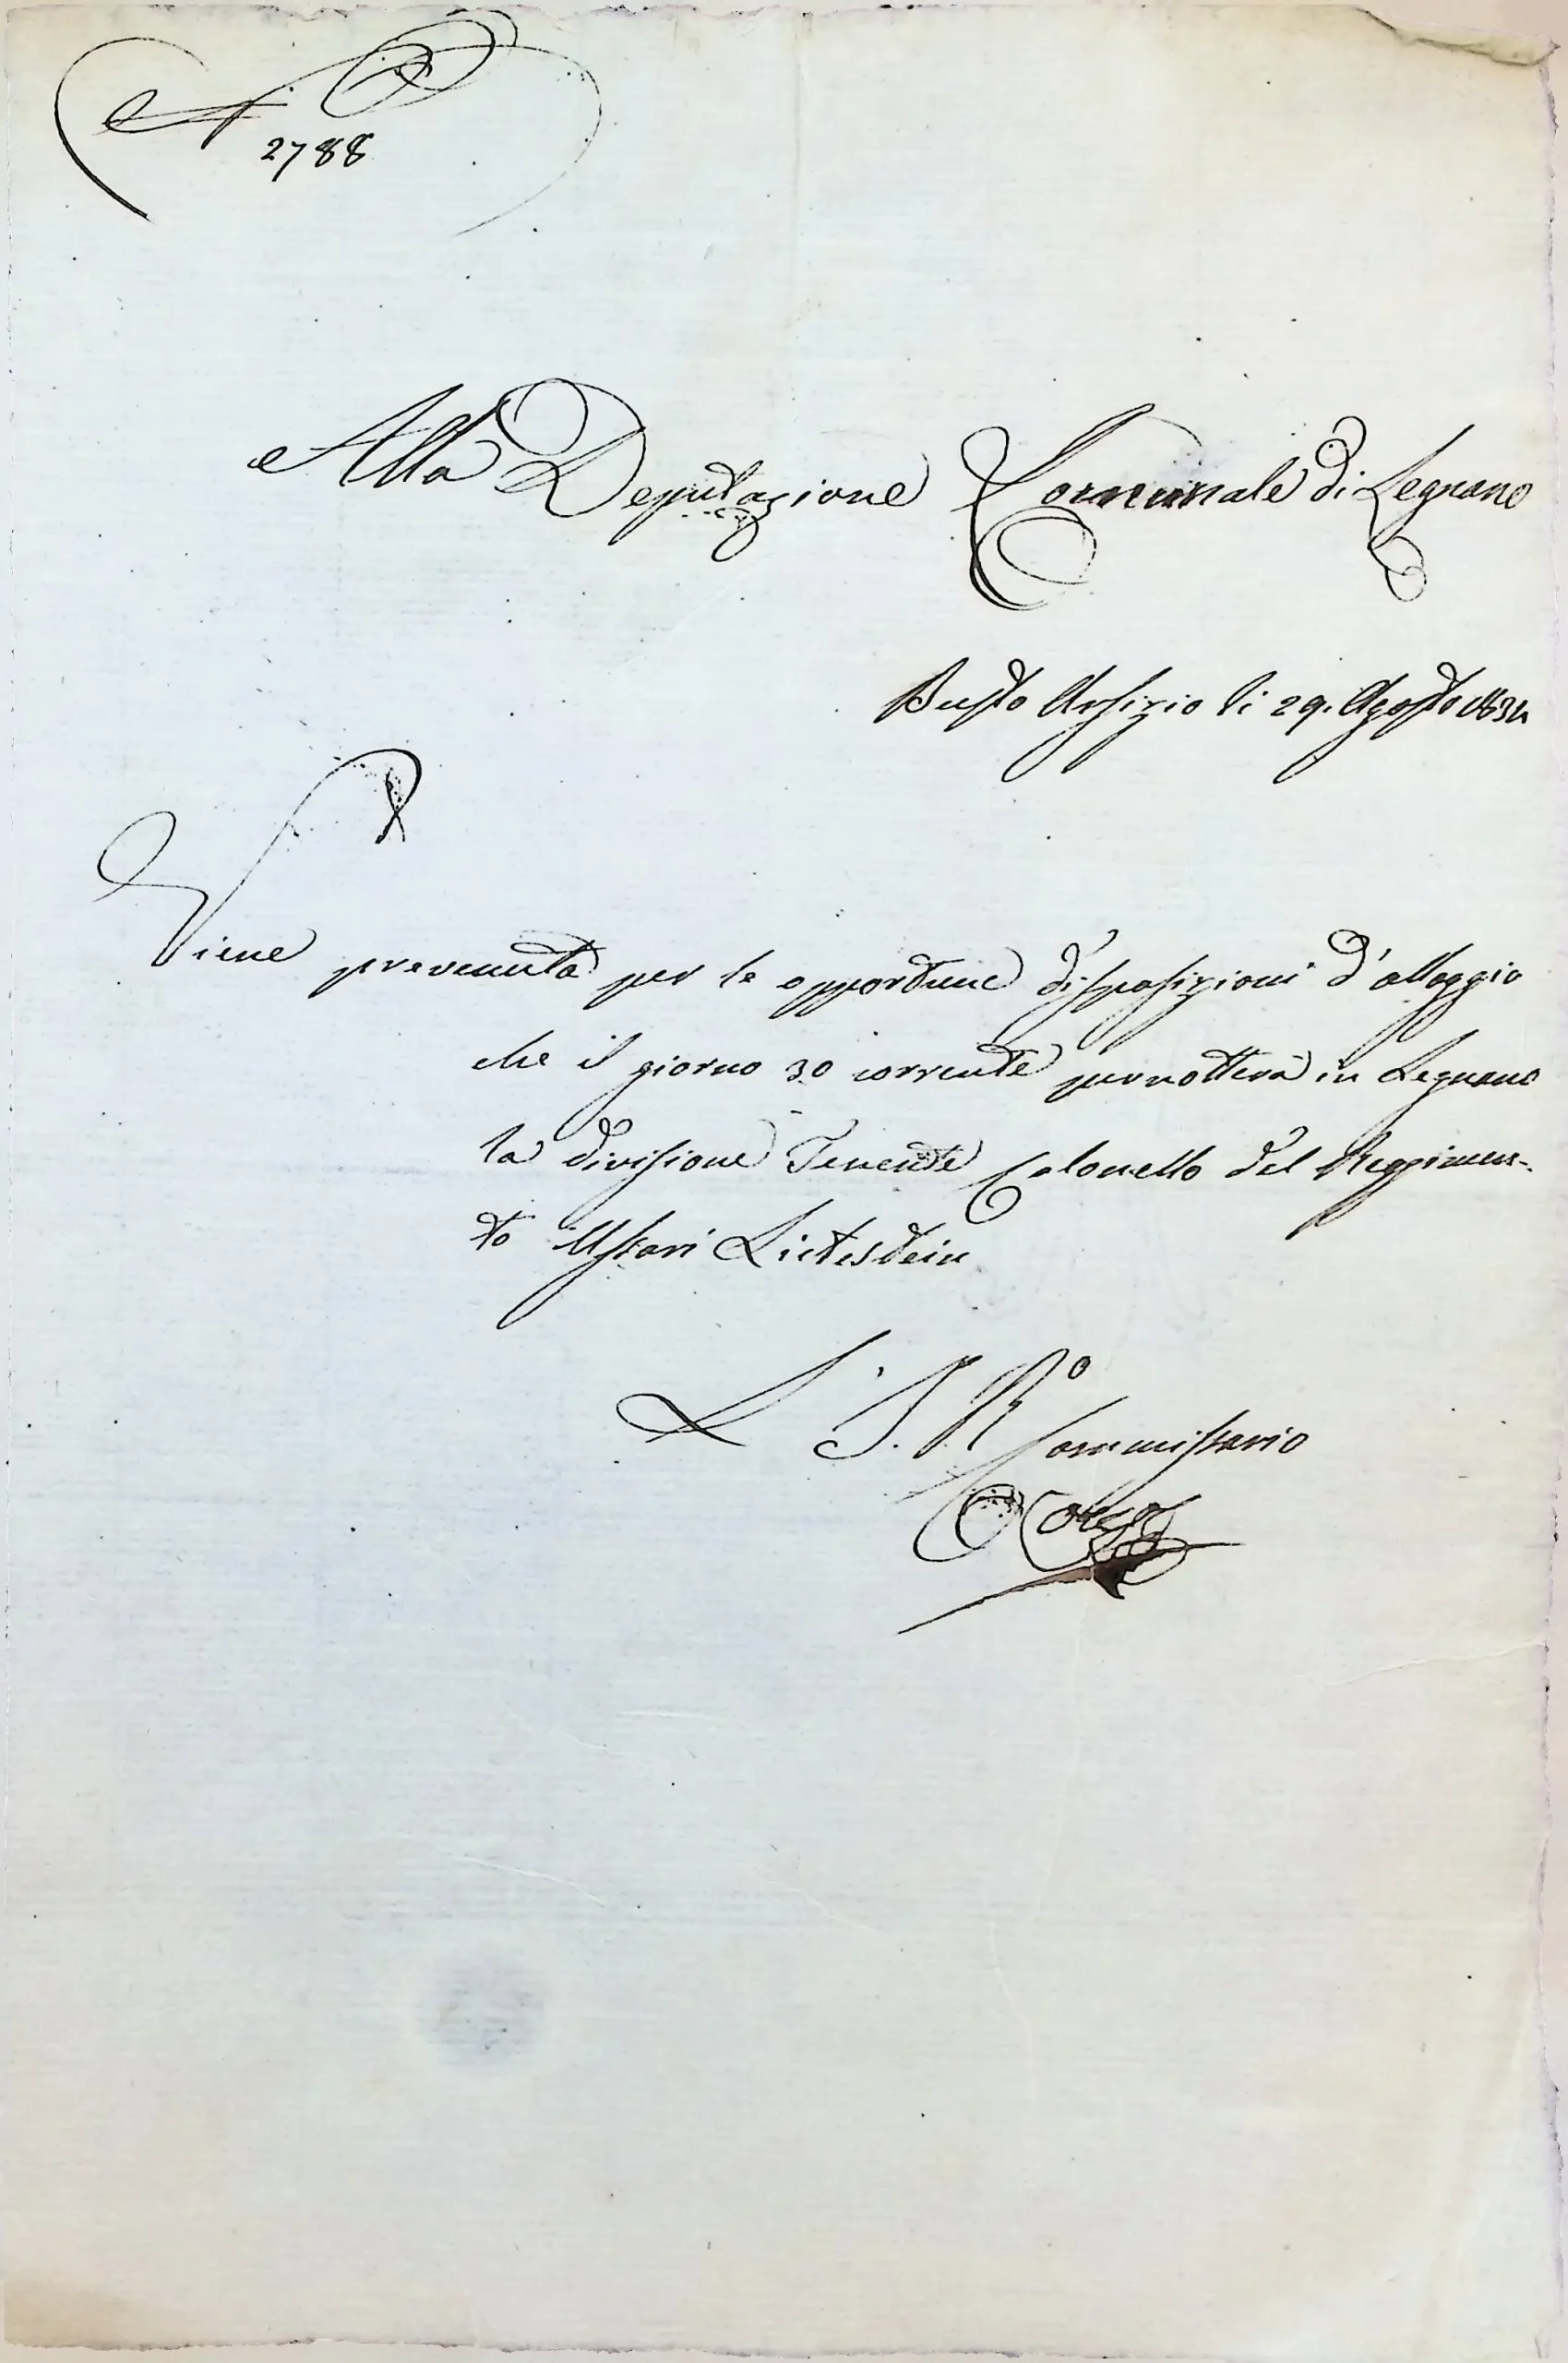 N.
2788
Alla Deputazione Comunale di Legnano
Busto Arsizio li 29. Agosto 1834
Viene prevenuta per le opportune disposizioni d'alloggio
che il giorno 30 corrente pernotterà in Legnano
la divisione Tenente Colonello del Reggimen-
to Ussari Lictestein
L'I. R.o Commissario